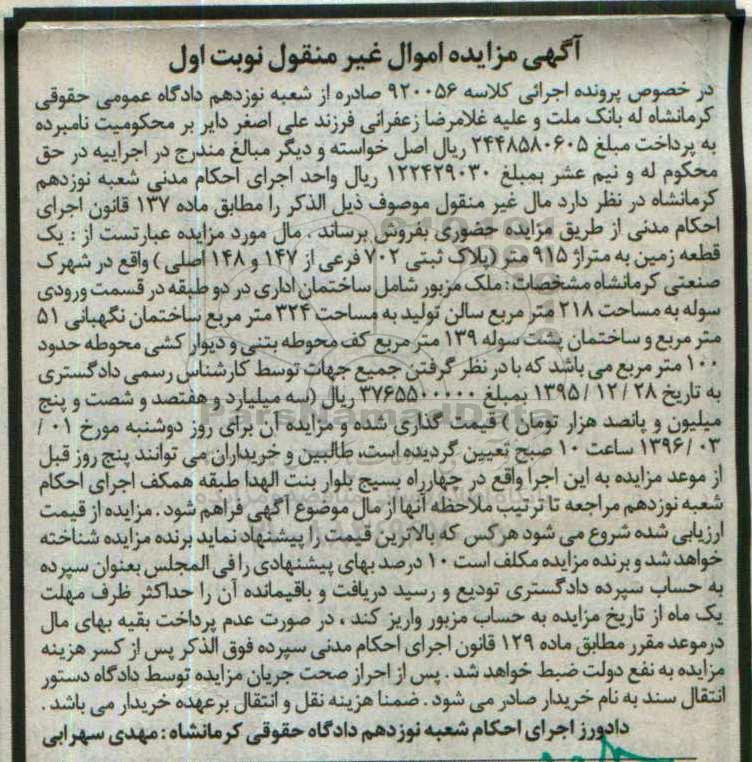 آگهی مزایده اموال غیر منقول نوبت اول
در خصوص پرونده اجرائی کلاسه ۹۲۰۰۵۶ صادره از شعبه نوزدهم دادگاه عمومی حقوقی
کرمانشاه له بانک ملت و علیه غلامرضا زعفرانی فرزند علی اصغر دایر بر محکومیت نامبرده
به پرداخت مبلغ ۲۴۴۸۵۸۰۶۰۵ ریال اصل خواسته و دیگر مبالغ مندرج در اجراییه در حق
محکوم له و نیم عشر بمبلغ ۱۲۲۴۲۹۰۳۰ ریال واحد اجرای احکام مدنی شعبه نوزدهم
کرمانشاه در نظر دارد مال غیر منقول موصوف ذیل الذکر را مطابق ماده ۱۳۷ قانون اجرای
احکام مدنی از طریق مزایده حضوری بفروش برساند . مال مورد مزایده عبارتست از : یک
قطعه زمین به متراژ ۹۱۵ متر (پلاک ثبتی ۷۰۲ فرعی از ۱۴۷ و ۱۴۸ اصلی ) واقع در شهرک
صنعتی کرمانشاه مشخصات : ملک مزبور شامل ساختمان اداری در دو طبقه در قسمت ورودی
سوله به مساحت ۲۱۸ متر مربع سالن تولید به مساحت ۳۲۴ متر مربع ساختمان نگهبانی ۵۱
متر مربع و ساختمان پشت سوله ۱۳۹ متر مربع کف محوطه بتنی و دیوار کشی محوطه حدود
۱۰۰ متر مربع می باشد که با در نظر گرفتن جمیع جهات توسط کارشناس رسمی دادگستری
به تاریخ ۲۸ / ۱۲ / ۱۳۹۵ بمبلغ ۳۷۶۵۵۰۰۰۰۰ ریال (سه میلیارد و هفتصد و شصت و پنج
میلیون و پانصد هزار تومان ) قیمت گذاری شده و مزایده آن برای روز دوشنبه مورخ ۰۱ /
۰۳ / ۱۳۹۶ ساعت ۱۰ صبح تعیین گردیده است. طالبین و خریداران می توانند پنج روز قبل
از موعد مزایده به این اجرا واقع در چهارراه بسیج بلوار بنت الهدا طبقه همکف اجرای احکام
شعبه نوزدهم مراجعه تا ترتیب ملاحظه آنها از مال موضوع آگهی فراهم شود . مزایده از قیمت
ارزیابی شده شروع می شود هرکس که بالاترین قیمت را پیشنهاد نماید برنده مزایده شناخته
خواهد شد و برنده مزایده مکلف است ۱۰ درصد بهای پیشنهادی را فی المجلس بعنوان سپرده
به حساب سپرده دادگستری تودیع و رسید دریافت و باقیمانده آن را حداکثر ظرف مهلت
یک ماه از تاریخ مزایده به حساب مزبور واریز کند ، در صورت عدم پرداخت بقیه بهای مال
درموعد مقرر مطابق ماده ۱۲۹ قانون اجرای احکام مدنی سپرده فوق الذکر پس از کسر هزینه
مزایده به نفع دولت ضبط خواهد شد . پس از احراز صحت جریان مزایده توسط دادگاه دستور
انتقال سند به نام خریدار صادر می شود . ضمنا هزینه نقل و انتقال برعهده خریدار می باشد .
دادورز اجرای احکام شعبه نوزدهم دادگاه حقوقی کرمانشاه : مهدی سهرابی
ParsNamadData